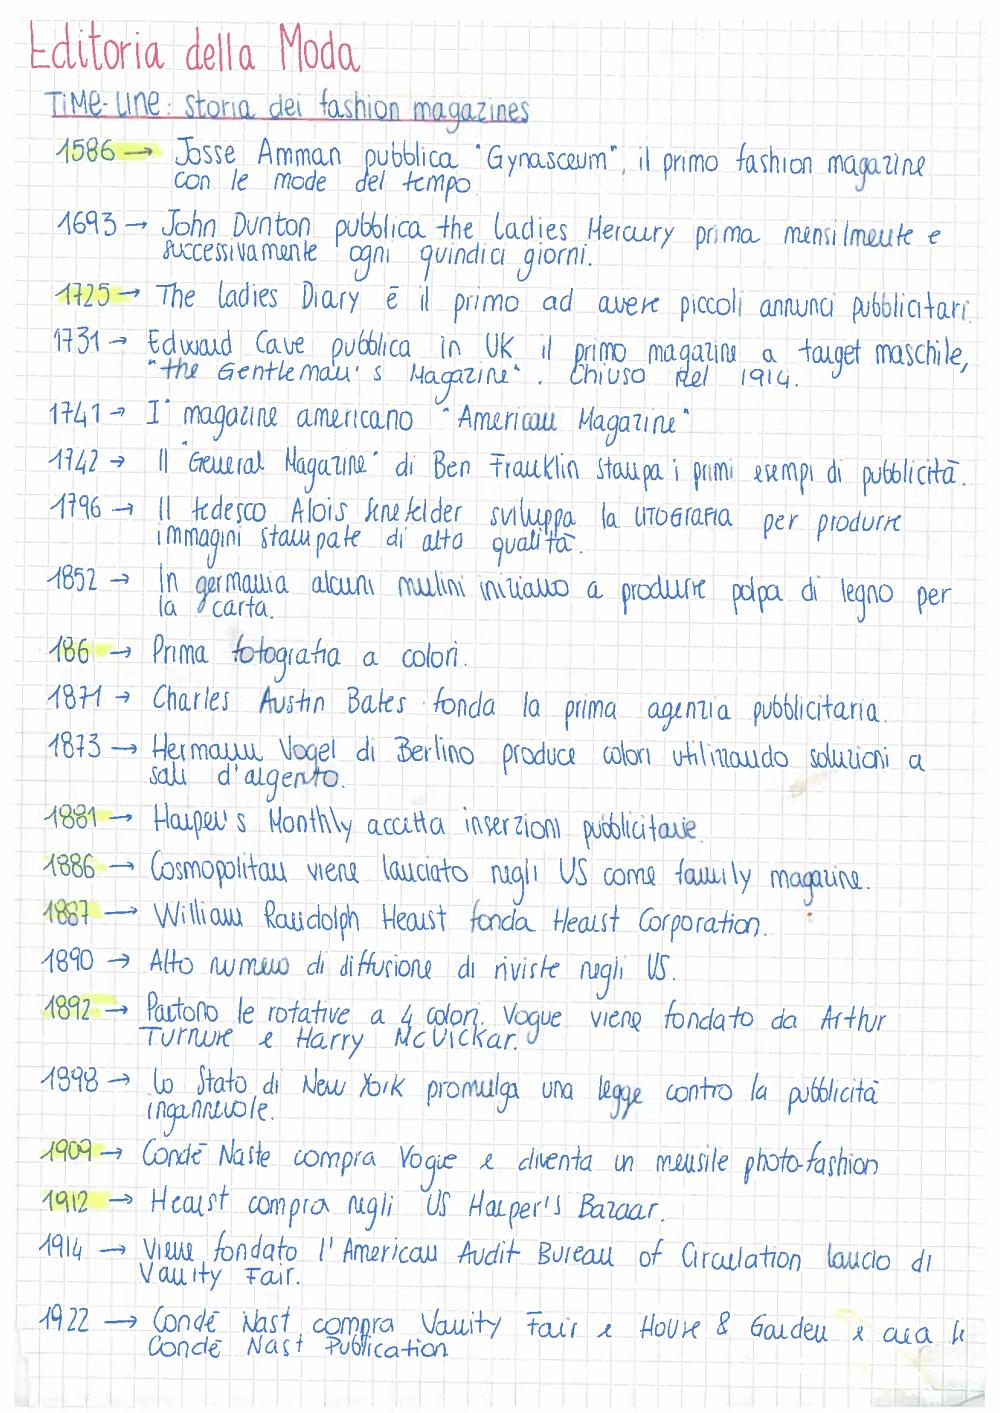 Editoria della Moda
TIME-LINE: storia dei fashion magazines
1586 → Josse Amman pubblica "Gynasceum", il primo fashion magazine
con le mode del tempo.
1693 → John Dunton pubblica the ladies Mercury prima mensilmente e
successivamente ogni quindici giorni.
1725 → The ladies Diary è il primo ad avere piccoli annunci pubblicitari.
1731 → Edward Cave pubblica in UK il primo magazine a target maschile,
"the Gentleman's Magazine". Chiuso nel 1914.
1741 → I° magazine americano "American Magazine"
1742 → Il "General Magazine" di Ben Franklin stampa i primi esempi di pubblicità.
1796 → Il tedesco Alois Senefelder sviluppa la LITOGRAFIA per produrre
immagini stampate di alta qualità.
1852 → In germania alcuni mulini iniziano a produrre polpa di legno per
la carta.
186 → Prima fotografia a colori.
1871 → Charles Austin Bates fonda la prima agenzia pubblicitaria.
1873 → Hermann Vogel di Berlino produce colori utilizzando soluzioni a
sali d'argento.
1881 → Harper's Monthly accetta inserzioni pubblicitarie.
1886 → Cosmopolitan viene lanciato negli US come family magazine.
1887 → William Randolph Hearst fonda Hearst Corporation.
1890 → Alto numero di diffusione di riviste negli US.
1892 → Partono le rotative a 4 colori. Vogue viene fondato da Arthur
Turnure e Harry McVickar.
1898 → lo Stato di New York promulga una legge contro la pubblicità
ingannevole.
1909 → Condè Naste compra Vogue e diventa un mensile photo-fashion
1912 → Hearst compra negli US Harper's Bazaar.
1914 → Viene fondato l'American Audit Bureau of Circulation lancio di
Vanity Fair.
1922 → Condè Nast compra Vanity Fair e House & Garden e crea le
Condè Nast Publication